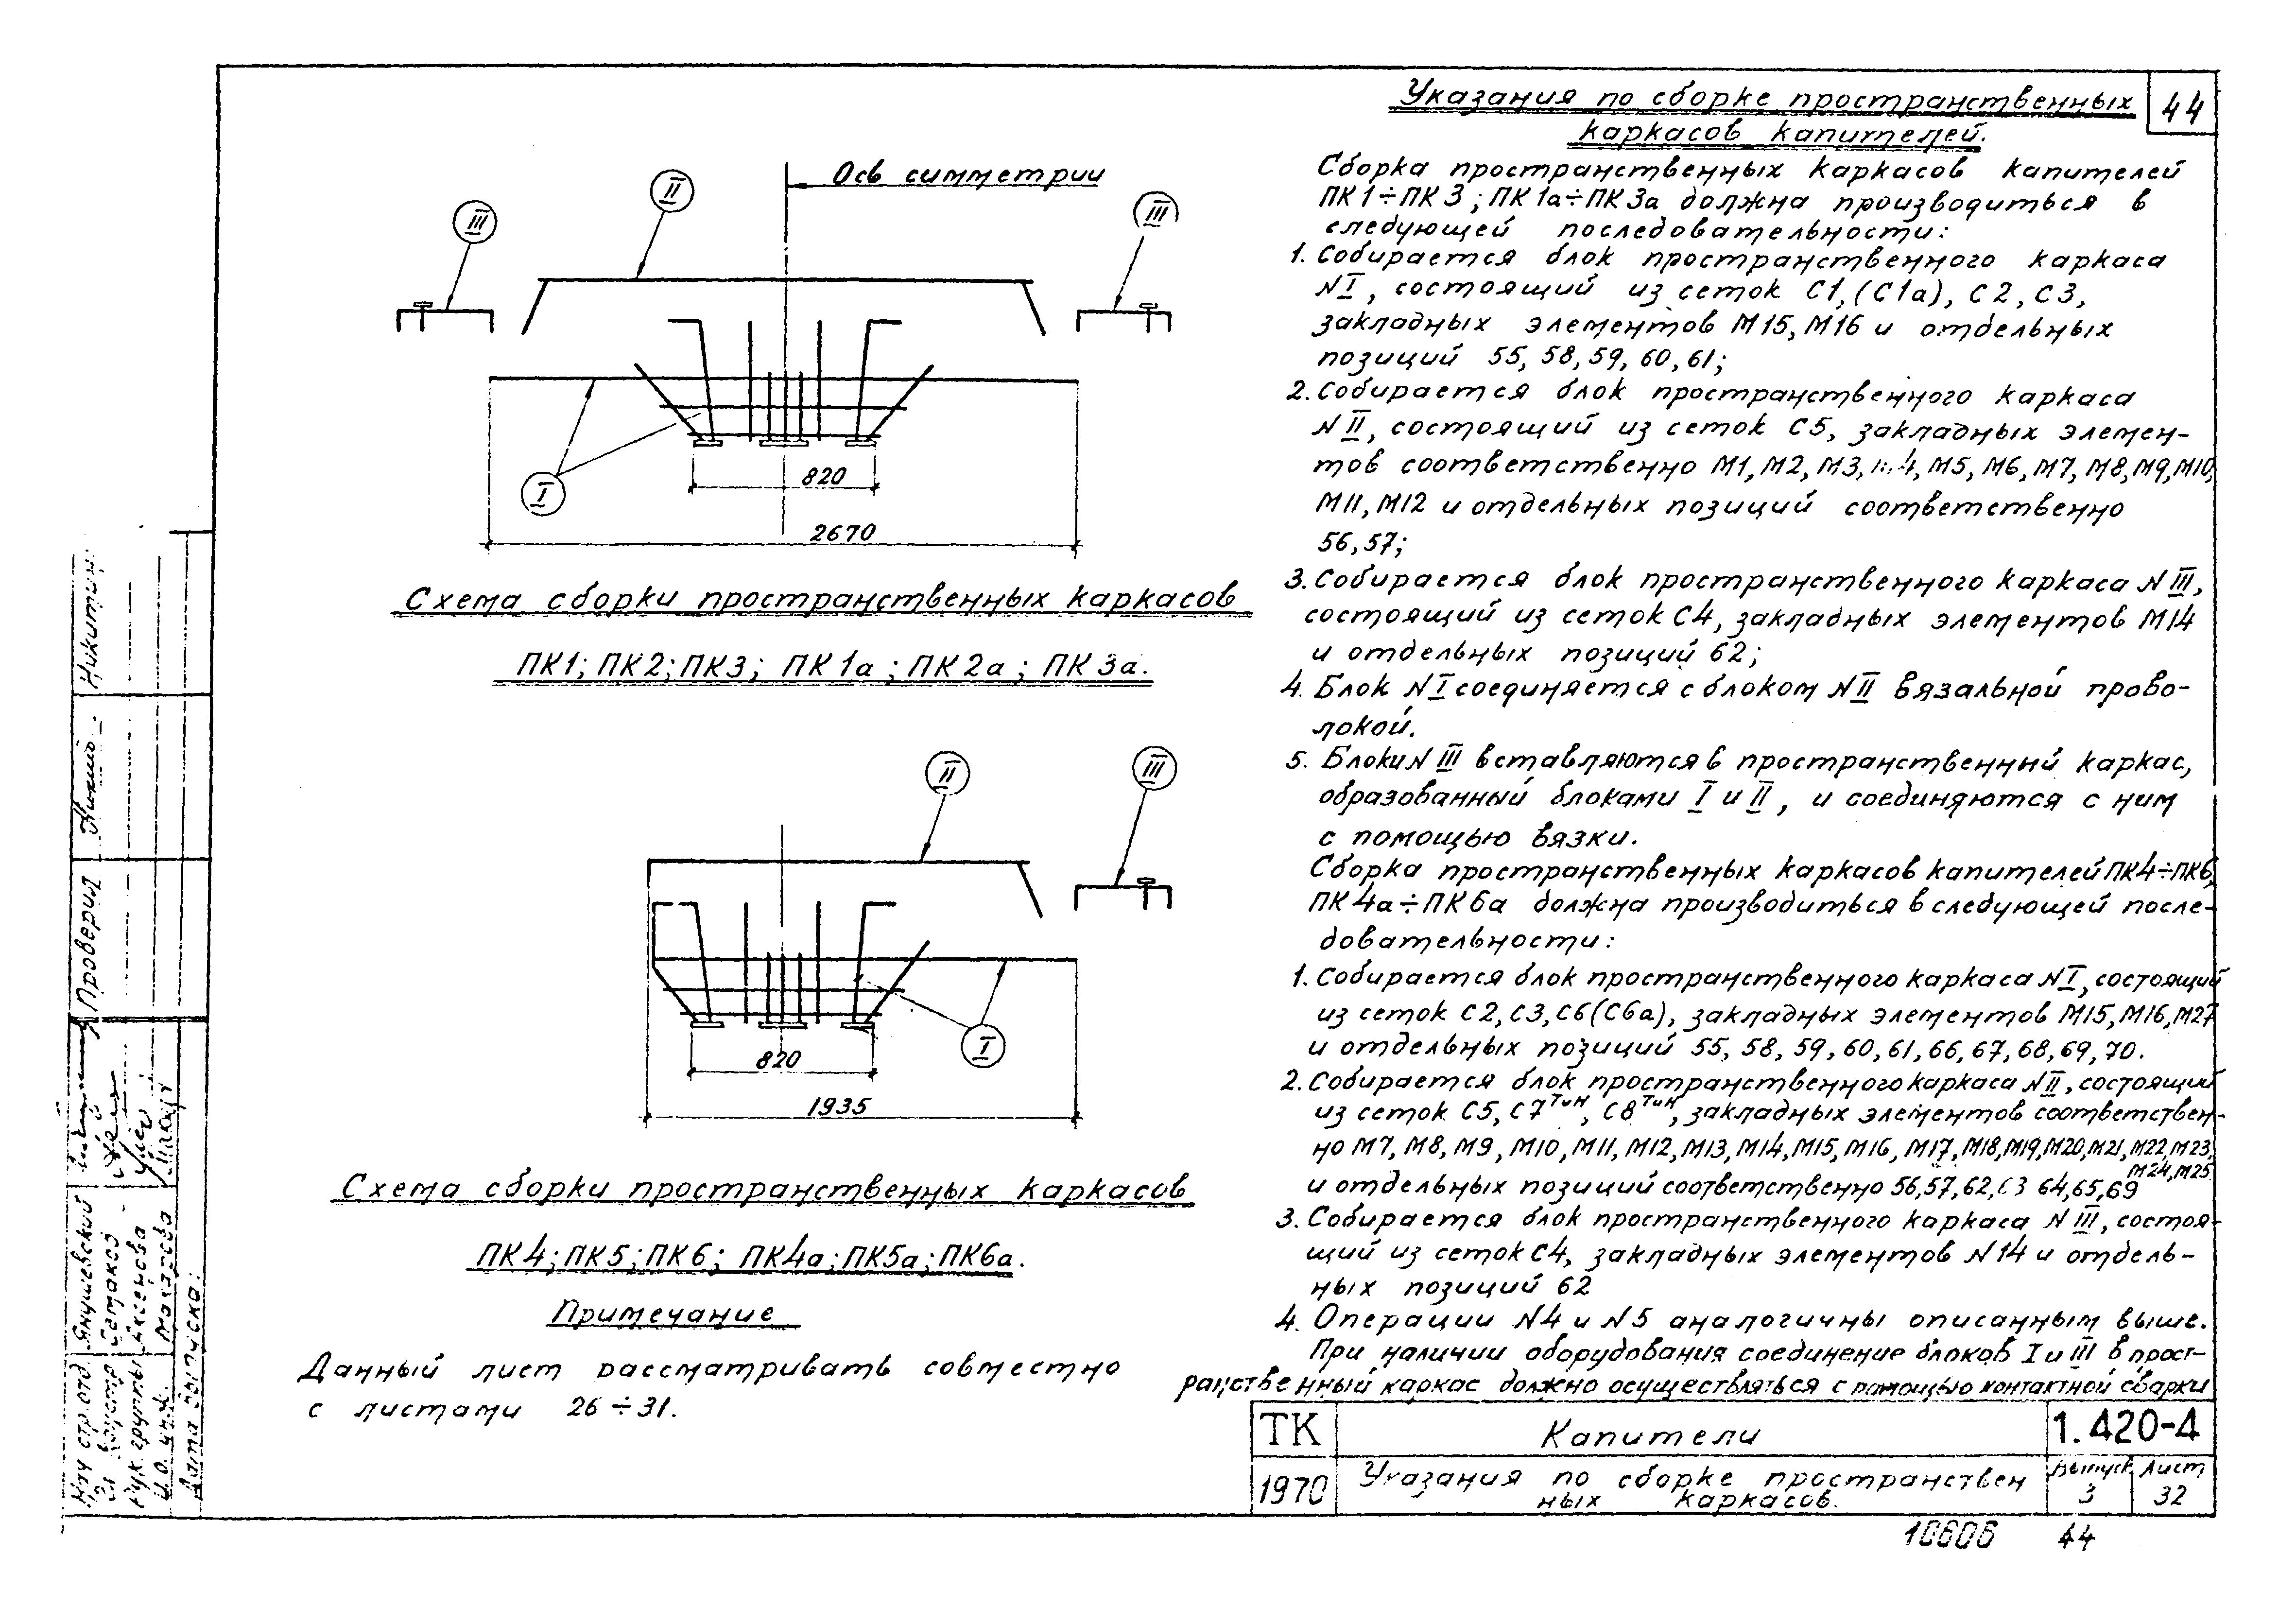 44
Ось симметрии
II
III
III
I
820
2670
Схема сборки пространственных каркасов
ПК1; ПК2; ПК3; ПК1а; ПК2а; ПК3а.
II
III
I
820
1935
Схема сборки пространственных каркасов
ПК4; ПК5; ПК6; ПК4а; ПК5а; ПК6а.
Примечание
Данный лист рассматривать совместно
с листами 26÷31.
Указания по сборке пространственных
каркасов капителей.
Сборка пространственных каркасов капителей
ПК1÷ПК3; ПК1а÷ПК3а должна производиться в
следующей последовательности:
1. Собирается блок пространственного каркаса
N I, состоящий из сеток С1,(С1а), С2, С3,
закладных элементов М15, М16 и отдельных
позиций 55, 58, 59, 60, 61;
2. Собирается блок пространственного каркаса
N II, состоящий из сеток С5, закладных элемен-
тов соответственно М1, М2, М3, М4, М5, М6, М7, М8, М9, М10,
М11, М12 и отдельных позиций соответственно
56, 57;
3. Собирается блок пространственного каркаса N III,
состоящий из сеток С4, закладных элементов М14
и отдельных позиций 62;
4. Блок N I соединяется с блоком N II вязальной прово-
локой.
5. Блоки N III вставляются в пространственный каркас,
образованный блоками I и II, и соединяются с ним
с помощью вязки.
Сборка пространственных каркасов капителей ПК4÷ПК6,
ПК4а÷ПК6а должна производиться в следующей после-
довательности:
1. Собирается блок пространственного каркаса N I, состоящий
из сеток С2, С3, С6(С6а), закладных элементов М15, М16, М27
и отдельных позиций 55, 58, 59, 60, 61, 66, 67, 68, 69, 70.
2. Собирается блок пространственного каркаса N II, состоящий
из сеток С5, С7ᵀᶦᴴ, С8ᵀᶦᴴ, закладных элементов соответствен-
но М7, М8, М9, М10, М11, М12, М13, М14, М15, М16, М17, М18, М19, М20, М21, М22, М23,
М24, М25
и отдельных позиций соответственно 56, 57, 62, 63 64, 65, 69
3. Собирается блок пространственного каркаса N III, состоя-
щий из сеток С4, закладных элементов N14 и отдель-
ных позиций 62
4. Операции N4 и N5 аналогичны описанным выше.
При наличии оборудования соединение блоков I и III в прост-
ранственный каркас должно осуществляться с помощью контактной сварки
ТК
Капители
1.420-4
1970
Указания по сборке пространствен
ных каркасов.
Выпуск
3
Лист
32
10606 44
Проверил
Никитин
Нач стр. отд. Янушевский
Рук. группы Аксенова
Дата выпуска: